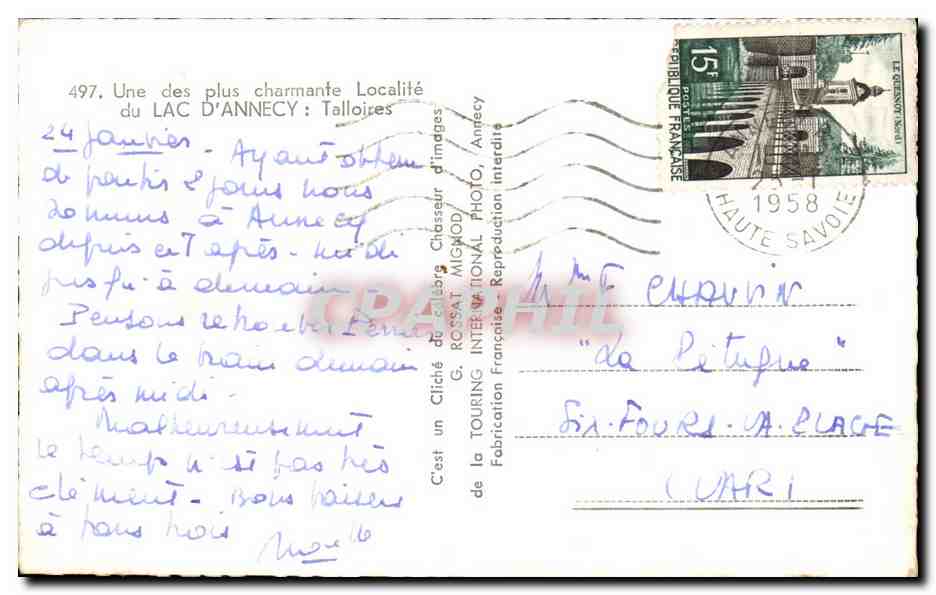 497. Une des plus charmante Localité
du LAC D'ANNECY : Talloires
24 Janvier - Ayant obtenu
de partir 2 jours nous
sommes à Annecy
depuis cet après-midi
jusqu'à demain -
Pensons retrouver
dans le train demain
après midi -
Malheureusement
le temps n'est pas très
clément - Bons baisers
à tous trois
C'est un Cliché du célèbre Chasseur d'images
G. ROSSAT MIGNOD
de la TOURING INTERNATIONAL PHOTO, Annecy
Fabrication Française - Reproduction interdite
15F
POSTES
REPUBLIQUE FRANÇAISE
LE QUESNOY (Nord)
1958
HAUTE SAVOIE
CPAPHIL
Mme F CHAUVIN
"La Pétugue"
SIX-FOURS-LA-PLAGE
(VAR)